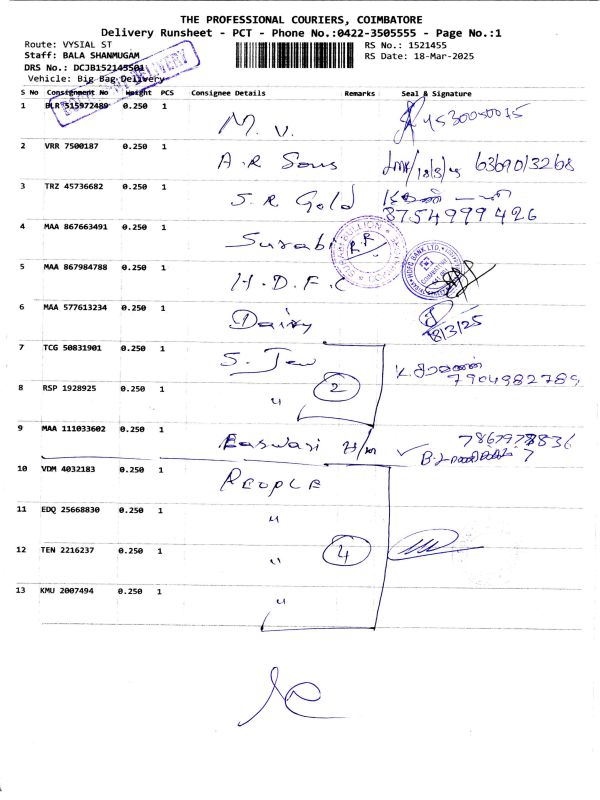 THE PROFESSIONAL COURIERS, COIMBATORE
Delivery Runsheet - PCT - Phone No.:0422-3505555 - Page No.:1
Route: VYSIAL ST
RS No.: 1521455
Staff: BALA SHANMUGAM
RS Date: 18-Mar-2025
DRS No.: DCJB152145501
Vehicle: Big Bag Delivery
S No Consignment No Weight PCS Consignee Details Remarks Seal & Signature
1 BLR 515972489 0.250 1 M. V.
2 VRR 7500187 0.250 1 A.R Sons 18/3/25 6369013268
3 TRZ 45736682 0.250 1 S.R Gold 8754999426
4 MAA 867663491 0.250 1 Surabi
5 MAA 867984788 0.250 1 H.D.F.C HDFC BANK LTD.
6 MAA 577613234 0.250 1 Dairy 18/3/25
7 TCG 50831901 0.250 1 S. Jew 7904982789
8 RSP 1928925 0.250 1 " 2
9 MAA 111033602 0.250 1 Easwari H/m
10 VDM 4032183 0.250 1 PEOPLE
11 EDQ 25668830 0.250 1 "
12 TEN 2216237 0.250 1 " 4
13 KMU 2007494 0.250 1 "